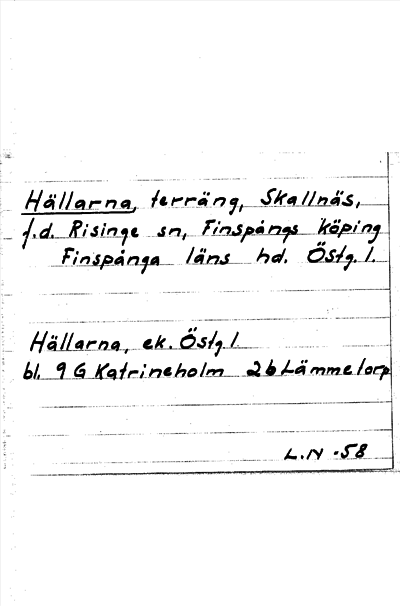 Hällarna, terräng, Skallnäs,
f.d. Risinge sn, Finspångs köping
Finspånga läns hd. Östg. l.
Hällarna, ek. Östg l
bl. 9 G Katrineholm 2b Lämmetorp
L.N -58